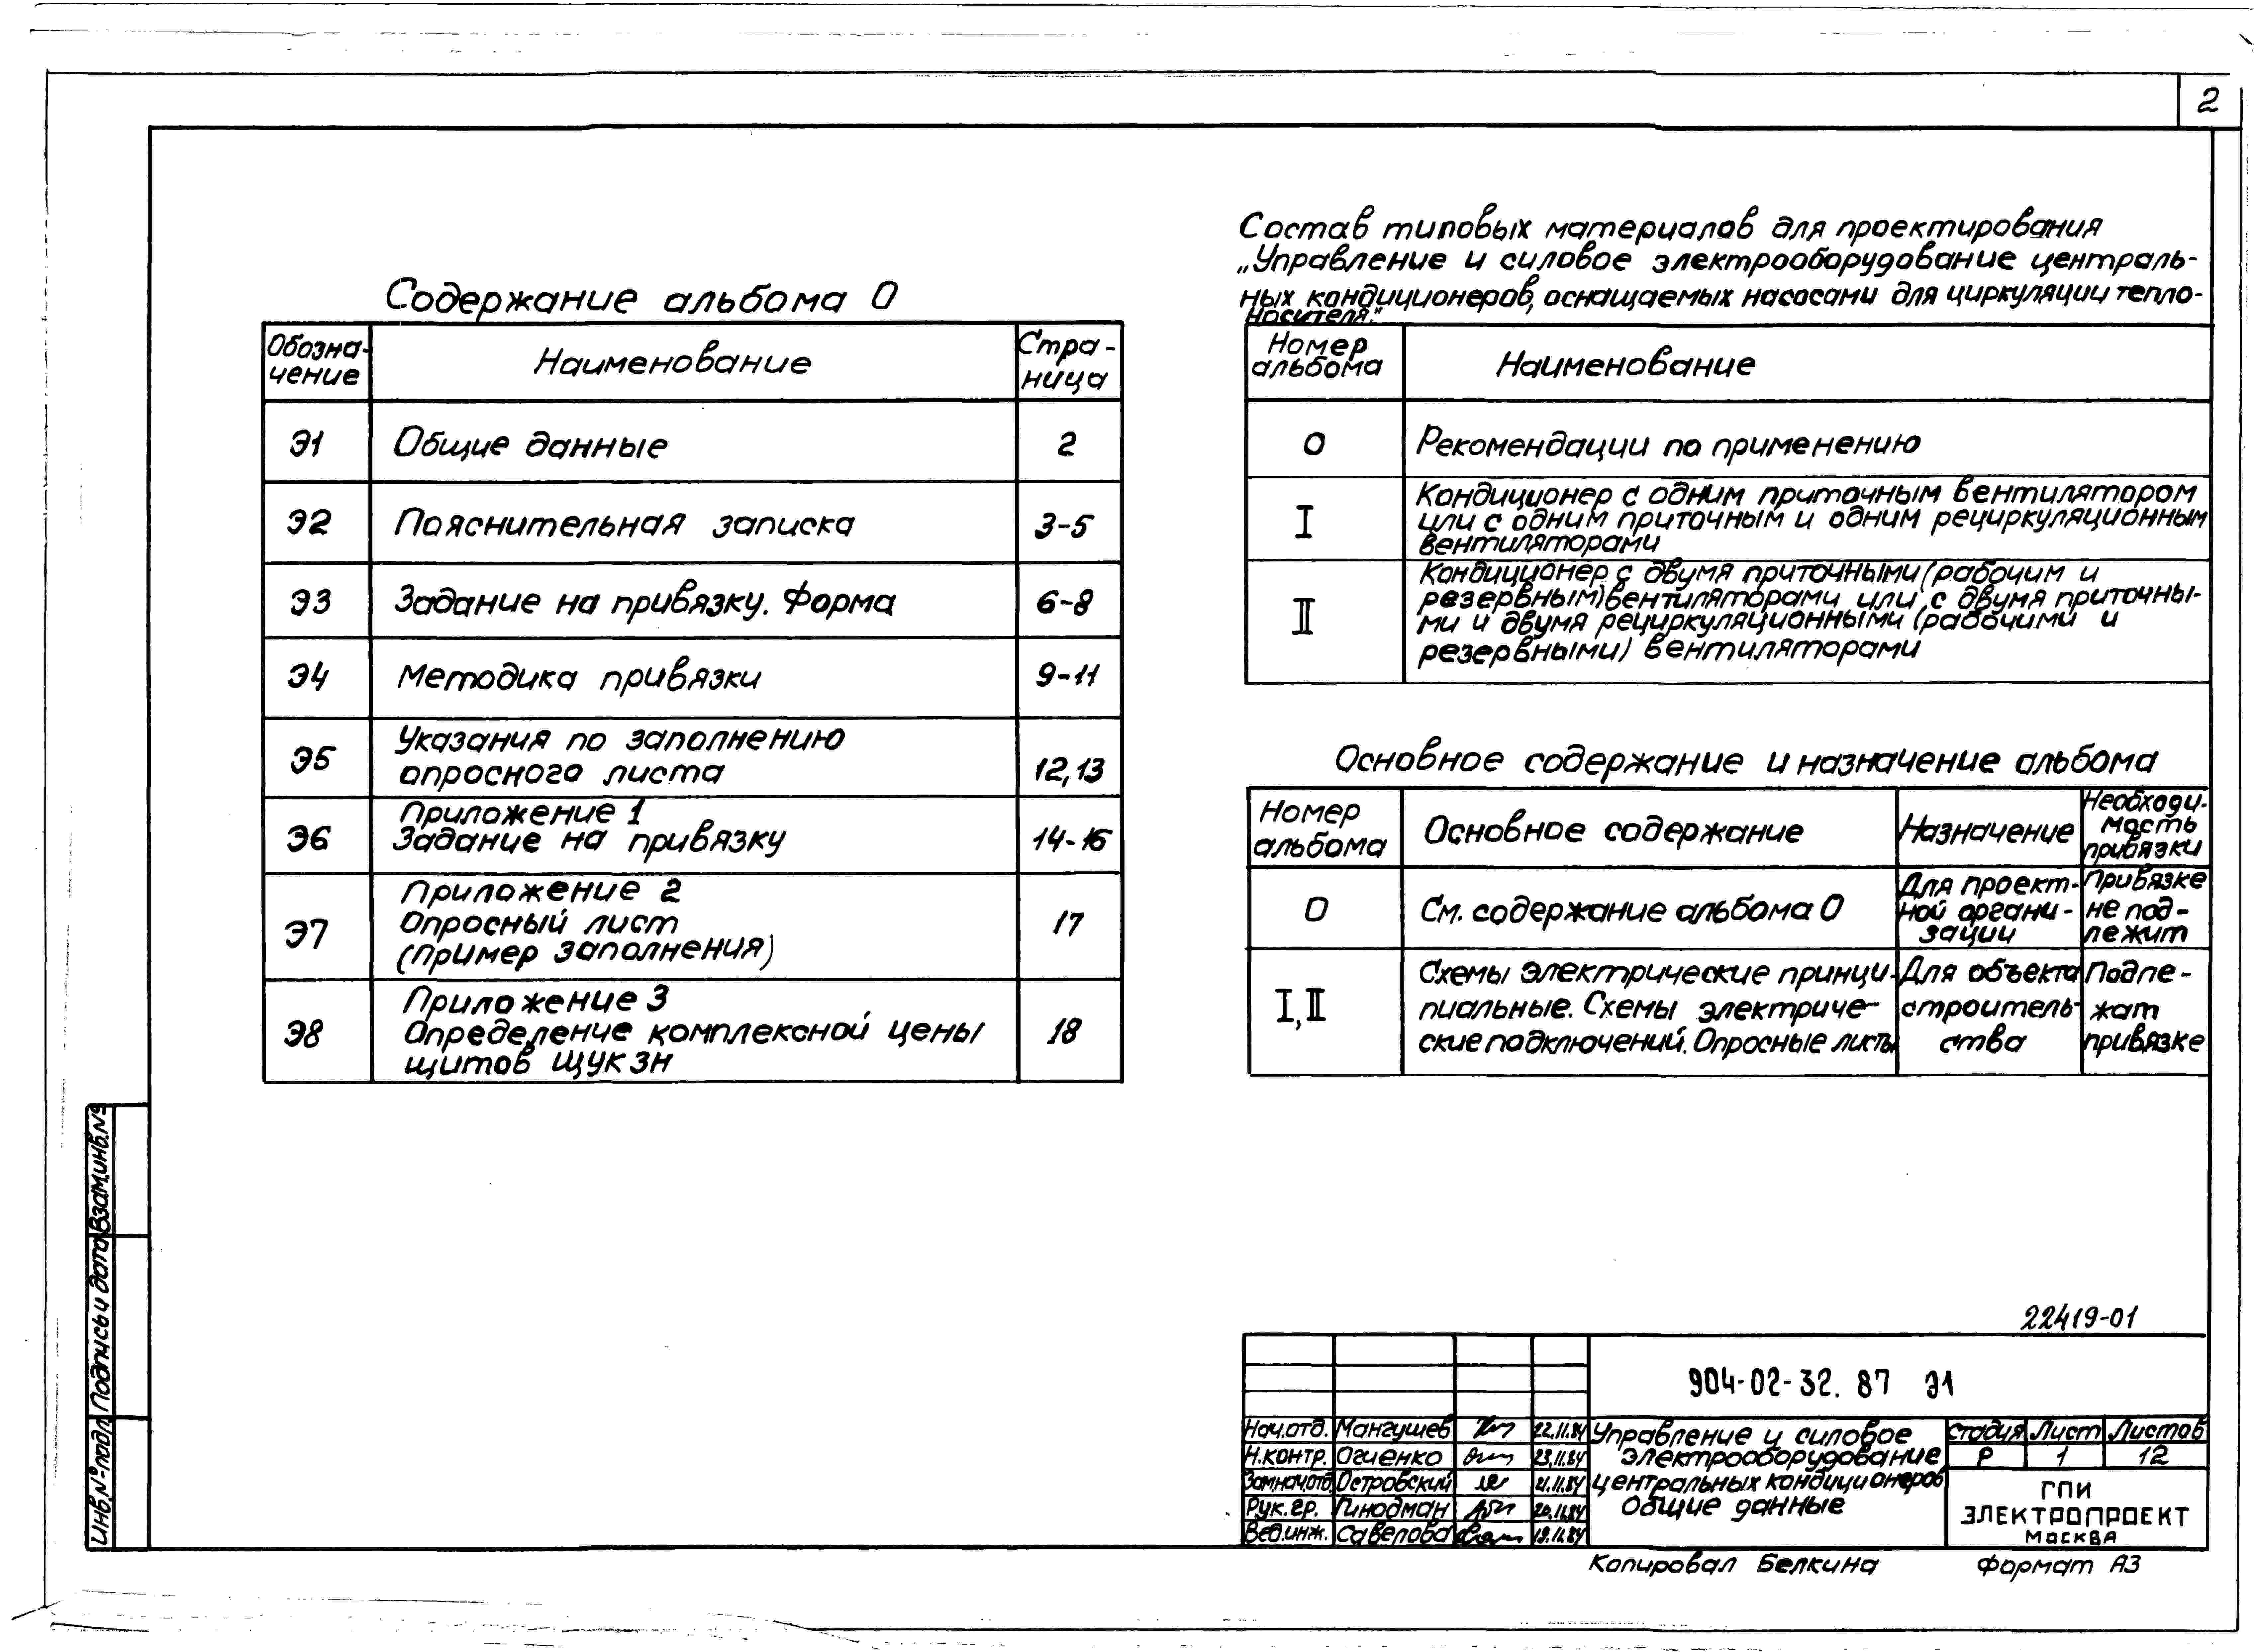 2
Содержание альбома 0
Обозна-
чение
Наименование
Стра-
ница
Э1
Общие данные
2
Э2
Пояснительная записка
3-5
Э3
Задание на привязку. Форма
6-8
Э4
Методика привязки
9-11
Э5
Указания по заполнению
опросного листа
12,13
Э6
Приложение 1
Задание на привязку
14-16
Э7
Приложение 2
Опросный лист
(Пример заполнения)
17
Э8
Приложение 3
Определение комплексной цены
щитов ЩУК ЗН
18
Состав типовых материалов для проектирования
„Управление и силовое электрооборудование централь-
ных кондиционеров, оснащаемых насосами для циркуляции тепло-
носителя."
Номер
альбома
Наименование
0
Рекомендации по применению
I
Кондиционер с одним приточным вентилятором
или с одним приточным и одним рециркуляционным
вентиляторами
II
Кондиционер с двумя приточными (рабочим и
резервным) вентиляторами или с двумя приточны-
ми и двумя рециркуляционными (рабочими и
резервными) вентиляторами
Основное содержание и назначение альбома
Номер
альбома
Основное содержание
Назначение
Необходи-
мость
привязки
0
См. содержание альбома 0
Для проект-
ной органи-
зации
Привязке
не под-
лежит
I, II
Схемы электрические принци-
пиальные. Схемы электриче-
ские подключений. Опросные листы
Для объекта
строитель-
ства
Подле-
жат
привязке
Взам.инв.№
Подпись и дата
Инв.№ подл.
22419-01
904-02-32. 87 Э1
Нач.отд. Мангушев 22.11.84
Н.контр. Огиенко 23.11.84
Зам.нач.отд. Островский 21.11.84
Рук.гр. Гинодман 20.11.84
Вед.инж. Савелова 19.11.84
Управление и силовое
электрооборудование
центральных кондиционеров
Общие данные
Стадия Лист Листов
Р 1 12
ГПИ
ЭЛЕКТРОПРОЕКТ
МОСКВА
Копировал Белкина
Формат А3